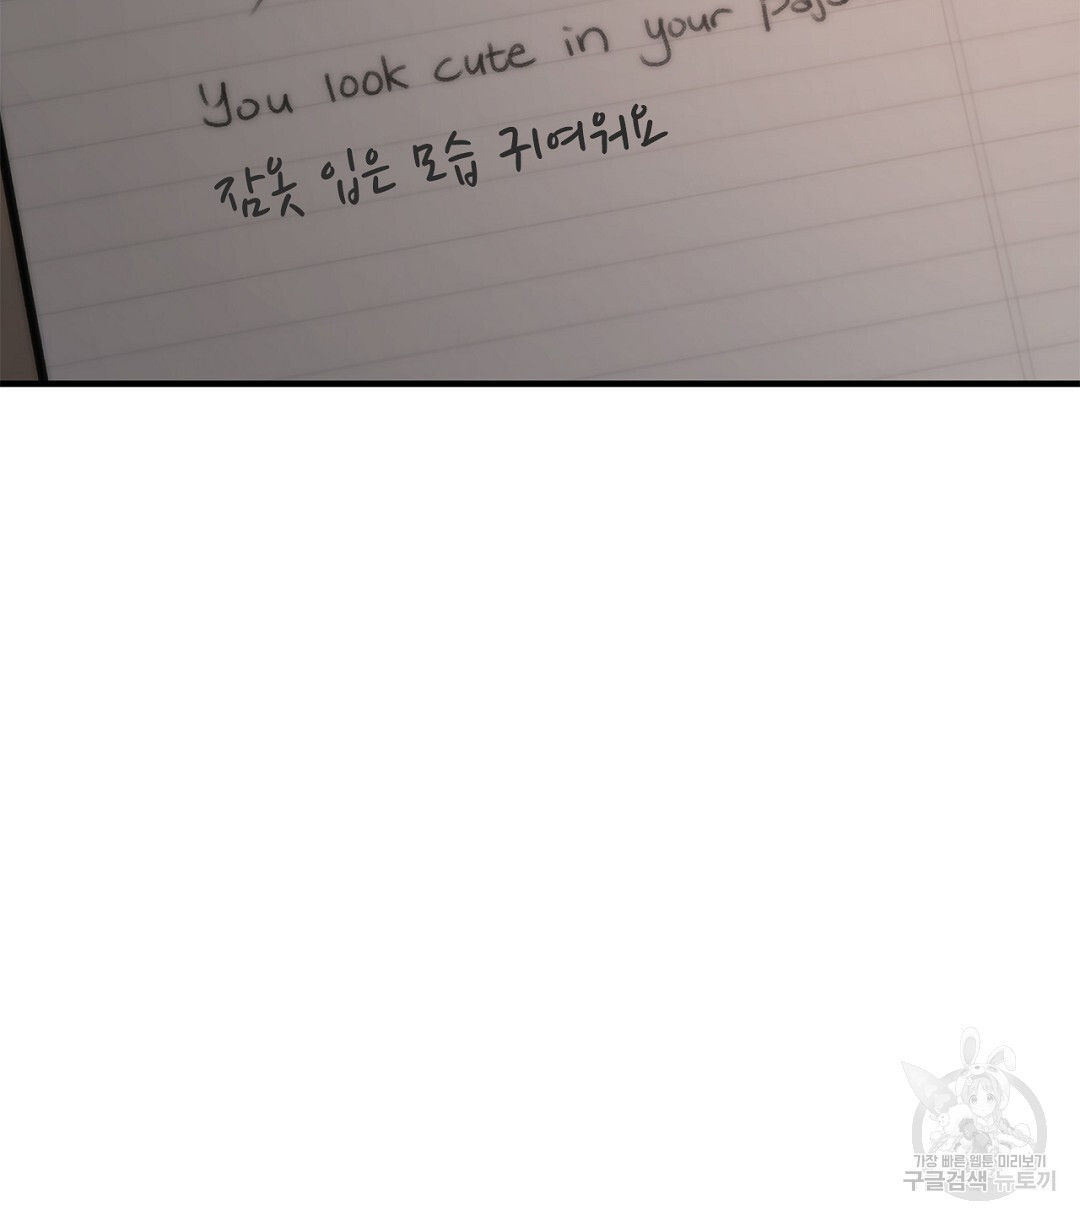 You look cute in your
잠옷 입은 모습 귀여워요
가장 빠른 웹툰 미리보기
구글검색 뉴토끼